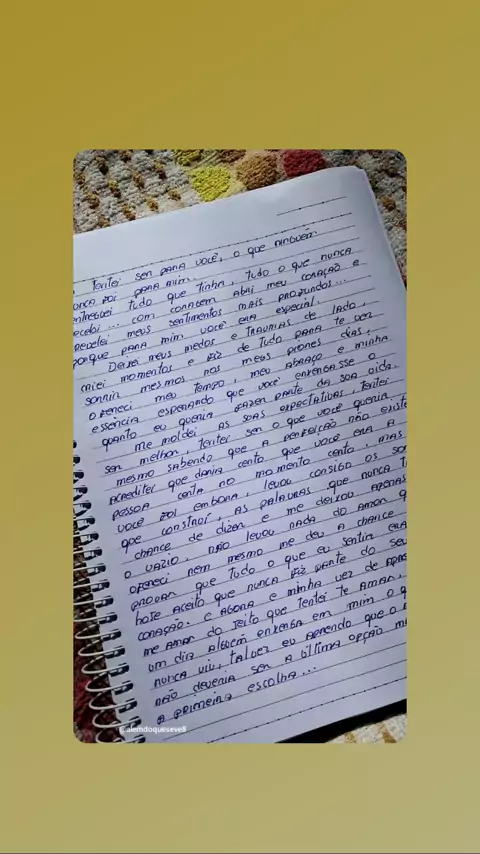 Tentei ser para você, o que ninguém
nunca foi para mim.
entreguei tudo que tinha, tudo o que nunca
recebi... com coragem abri meu coração e
revelei meus sentimentos mais profundos...
porque para mim você era especial.
Deixei meus medos e traumas de lado,
criei momentos e fiz de tudo para te ver
sorrir mesmos nos meus piores dias,
ofereci meu tempo, meu abraço e minha
essência esperando que você enxergasse o
quanto eu queria fazer parte da sua vida.
me moldei às suas expectativas, tentei
ser melhor, tentei ser o que você queria
mesmo sabendo que a perfeição não existe
Acreditei que daria certo que você era a
pessoa certa no momento certo, mas
você foi embora, levou consigo os
que construí, as palavras que nunca
chance de dizer e me deixou apenas
o vazio, não levou nada do amor
ofereci nem mesmo me deu a chance
provar que tudo o que eu sentia era
hoje aceito que nunca fiz parte do seu
coração. e agora é minha vez de
me amar do jeito que tentei te amar,
um dia alguém enxerga em mim o
nunca viu, talvez eu aprenda que o
não deveria ser a última opção
a primeira escolha...
@alemdoqueseve8